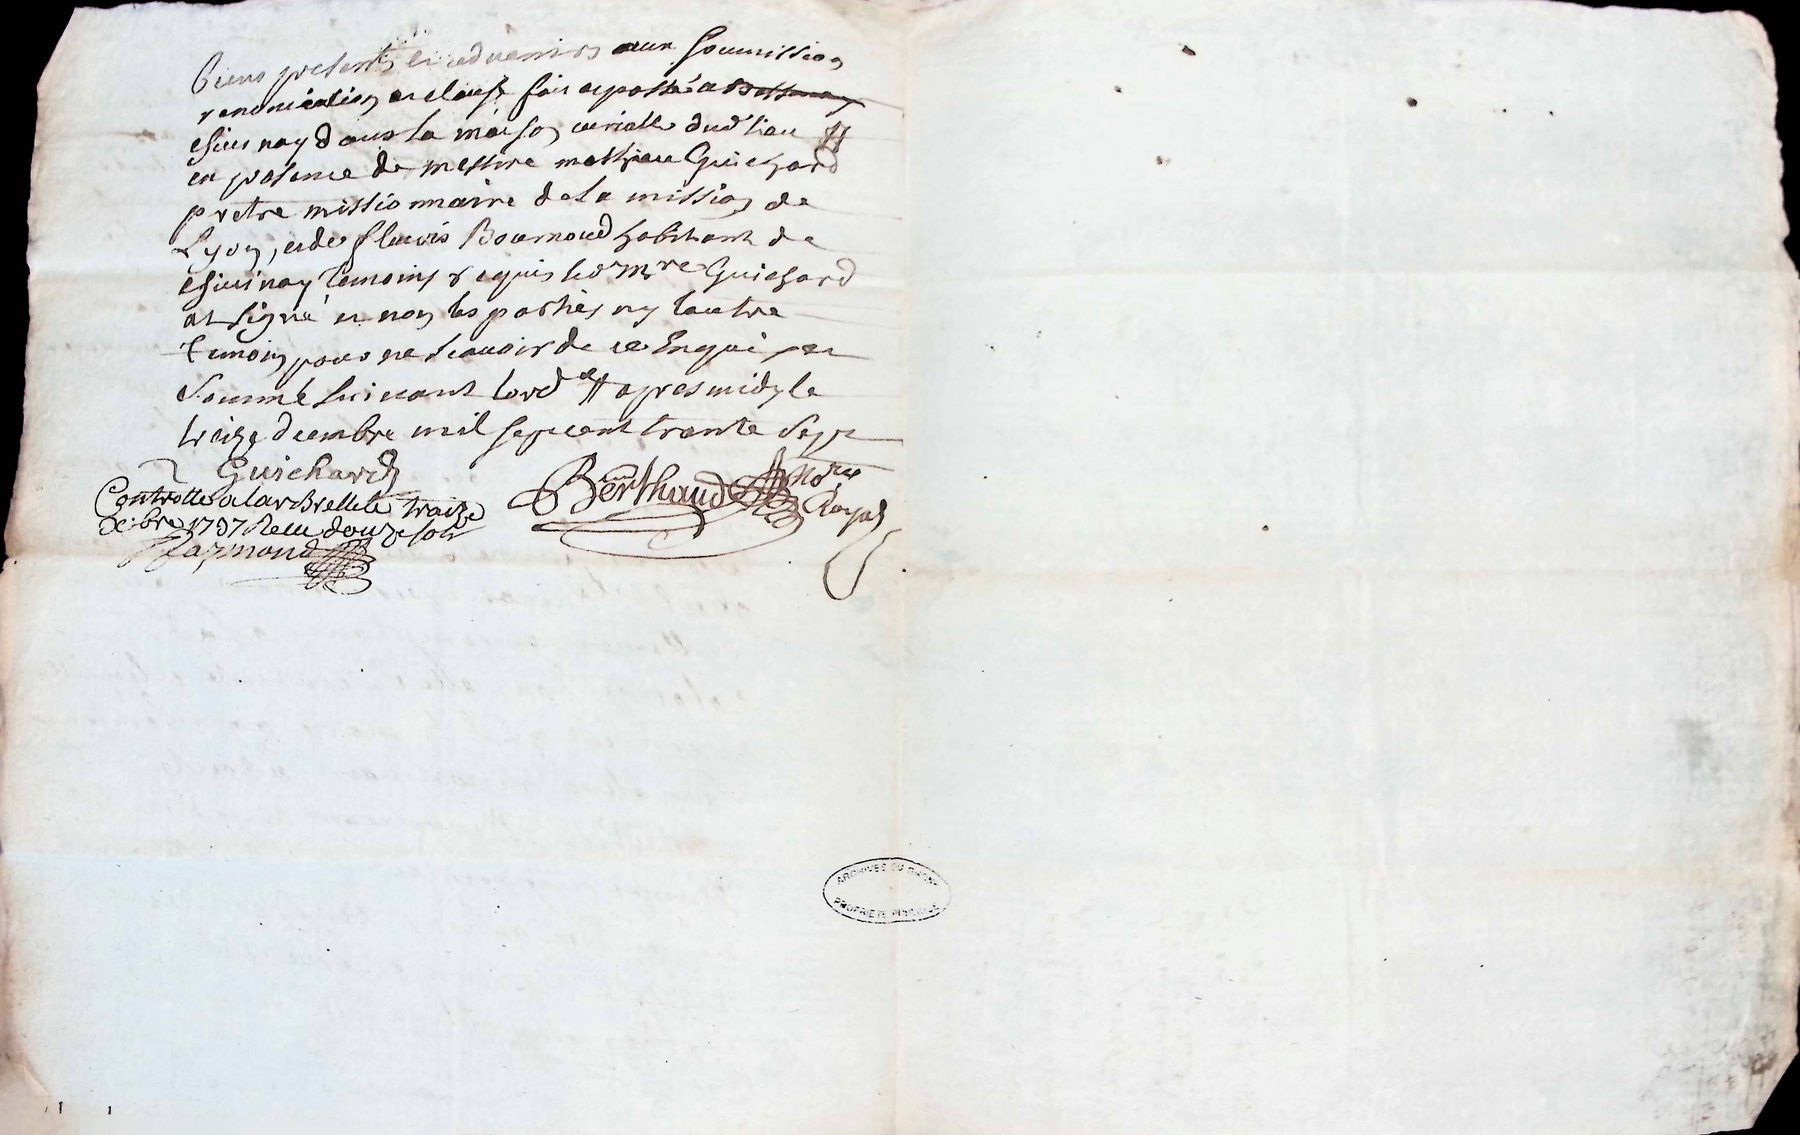 biens presents et advenirs avec soumission
renonciation et clause fait et passé a Bessenay
chivinay dans la maison curialle dud lieu
en presence de messire mathieu Guichard
pretre missionnaire de la mission de
Lyon, et de fleuris Bournoud habitant de
chivinay temoins requis led mre Guichard
at signé et non les parties ny lautre
temoin pour ne scavoir de ce Enquis et
sommé suivant lord apres midy le
treize decembre mil sept cent trante sept
Guichard
Berthaud Nore
Royal
Controllé a larbrelle le traize
decbre 1737 Receu douze sols
Raymond
ARCHIVES DU RHONE
PROPRIETE PUBLIQUE